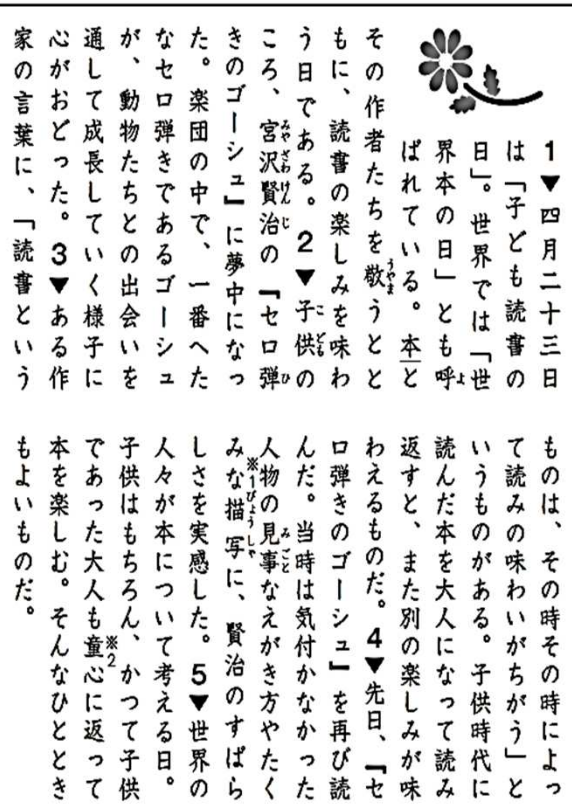 1▼四月二十三日
は「子ども読書の
日」。世界では「世
界本の日」とも呼
ばれている。本と
その作者たちを敬うとと
もに、読書の楽しみを味わ
う日である。2▼子供の
ころ、宮沢賢治の『セロ弾
きのゴーシュ』に夢中になっ
た。楽団の中で、一番へた
なセロ弾きであるゴーシュ
が、動物たちとの出会いを
通して成長していく様子に
心がおどった。3▼ある作
家の言葉に、「読書という
ものは、その時その時によっ
て読みの味わいがちがう」と
いうものがある。子供時代に
読んだ本を大人になって読み
返すと、また別の楽しみが味
わえるものだ。4▼先日、『セ
ロ弾きのゴーシュ』を再び読
んだ。当時は気付かなかった
人物の見事なえがき方やたく
みな描写※1に、賢治のすばら
しさを実感した。5▼世界の
人々が本について考える日。
子供はもちろん、かつて子供
であった大人も童心※2に返って
本を楽しむ。そんなひととき
もよいものだ。